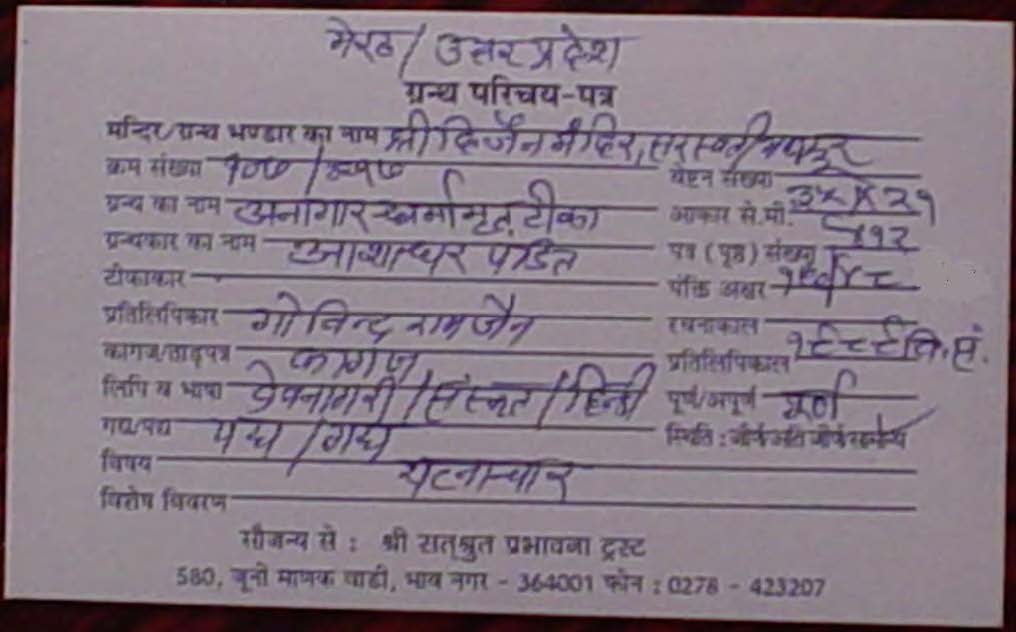 मेरठ / उत्तर प्रदेश
ग्रन्थ परिचय-पत्र
मन्दिर/ग्रन्थ भण्डार का नाम श्री दि. जैन मंदिर,
क्रम संख्या वेष्टन संख्या
ग्रन्थ का नाम अनागार धर्मामृत टीका आकार से.मी.
ग्रन्थकार का नाम आशाधर पंडित पत्र (पृष्ठ) संख्या
टीकाकार पंक्ति अक्षर
प्रतिलिपिकार गोविन्द राम जैन रचनाकाल
कागज/ताड़पत्र कागज प्रतिलिपिकाल १९८९ वि.सं.
लिपि व भाषा देवनागरी / संस्कृत / हिन्दी पूर्ण/अपूर्ण पूर्ण
गद्य/पद्य पद्य / गद्य स्थिति : जीर्ण/अति जीर्ण/सामान्य
विषय
विशेष विवरण
सौजन्य से : श्री सत्श्रुत प्रभावना ट्रस्ट
580, जूनी माणक वाडी, भाव नगर - 364001 फोन : 0278 - 423207